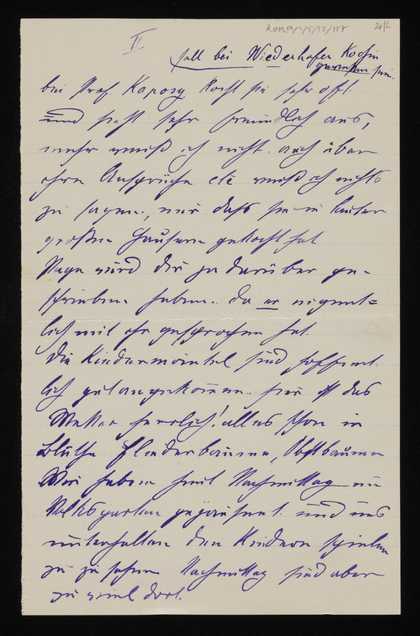 II.
soll bei Wiederhofer Köchin
gewesen sein.
bei Prof Kaposy kocht sie sehr oft
und sieht sehr freundlich aus,
mehr weiß ich nicht. auch über
ihre Ansprüche etc weiß ich nichts
zu sagen, nur daß sie in lauter
großen Häusern gekocht hat
Papa wird dir ja darüber ge-
schrieben haben. da er eigent=
lich mit ihr gesprochen hat
Die Kindermäntel sind hoffent
lich gut angekommen. hier ist das
Wetter herrlich! alles schon in
Blüthe Fliederbäume, Obstbäume
Wir haben heut Nachmittag im
Volksgarten gejausent und uns
unterhalten den Kindern spielen
zu zu sehen Nachmittag sind aber
zu viel dort.